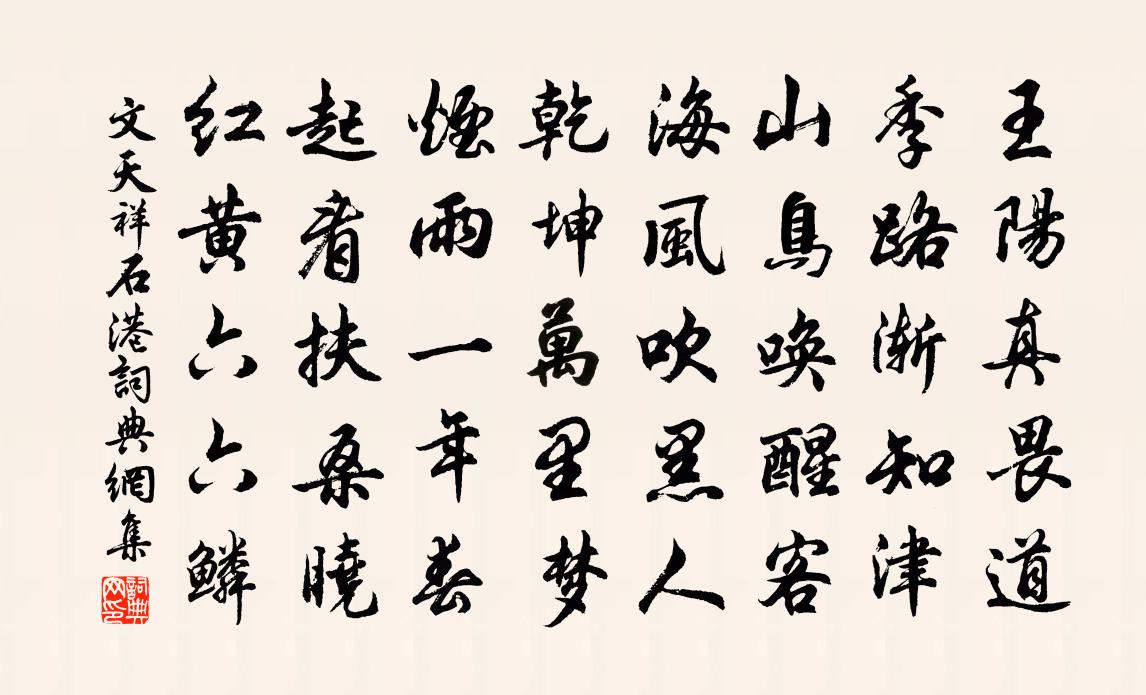 王陽真畏道
季路漸知津
山鳥喚醒客
海風吹黑人
乾坤萬里梦
煙雨一年春
起看扶桑曉
红黄六六鱗
文天祥石港詞典網集
詞典
网印